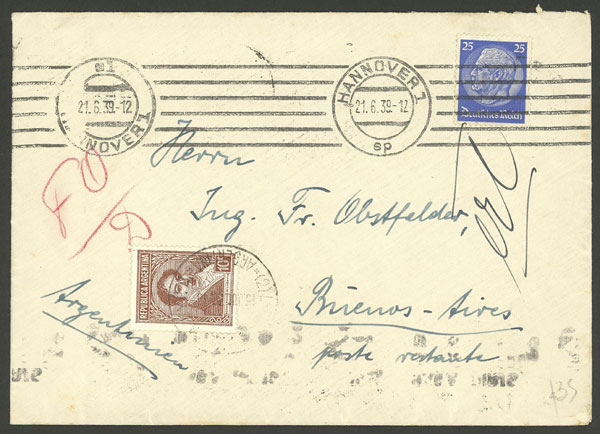 25 25
Deutsches Reich
HANNOVER 1
21.6.39.-12
sp
HANNOVER 1
21.6.39.-12
Herrn
Ing. Fr. Obstfelder,
REPUBLICA ARGENTINA
10c
Buenos-Aires
poste restante
Argentinien